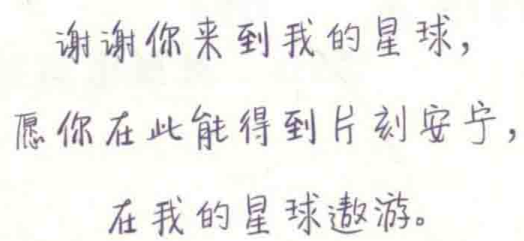 谢谢你来到我的星球，
愿你在此能得到片刻安宁，
在我的星球遨游。